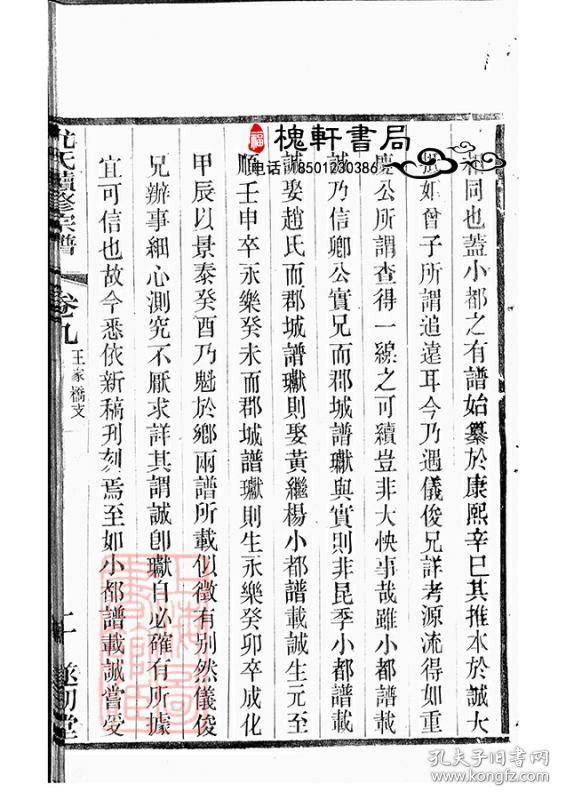 相同也蓋小都之有譜始纂於康熙辛巳其推本於誠大
如曾子所謂追遠耳今乃遇儀俊兄詳考源流得如重
慶公所謂查得一線之可續豈非大快事哉雖小都譜載
誠乃信卿公實兄而郡城譜瓛與實則非昆季小都譜載
誠娶趙氏而郡城譜瓛則娶黃繼楊小都譜載誠生元至
順壬申卒永樂癸未而郡城譜瓛則生永樂癸卯卒成化
甲辰以景泰癸酉乃魁於鄉兩譜所載似徵有别然儀俊
兄辦事細心測究不厭求詳其謂誠卽瓛自必確有所據
宜可信也故今悉依新稿刊刻焉至如小都譜載誠嘗受
尤氏續修宗譜 卷九 王家橋支 二 遂初堂
福
槐軒書局
电话:18501230386
孔夫子旧书网
www.kongfz.com